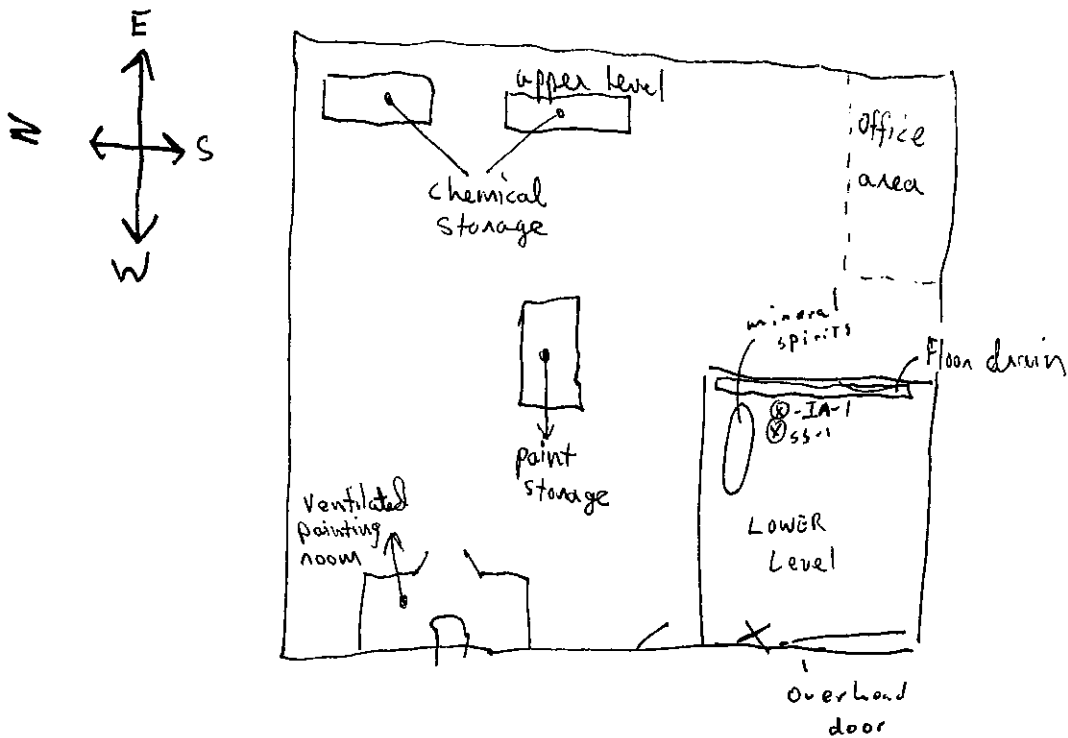 E
N
S
W
upper level
chemical
storage
office
area
mineral
spirits
Floor drain
IA-1
SS-1
paint
storage
Ventilated
painting
room
LOWER
Level
Overhead
door